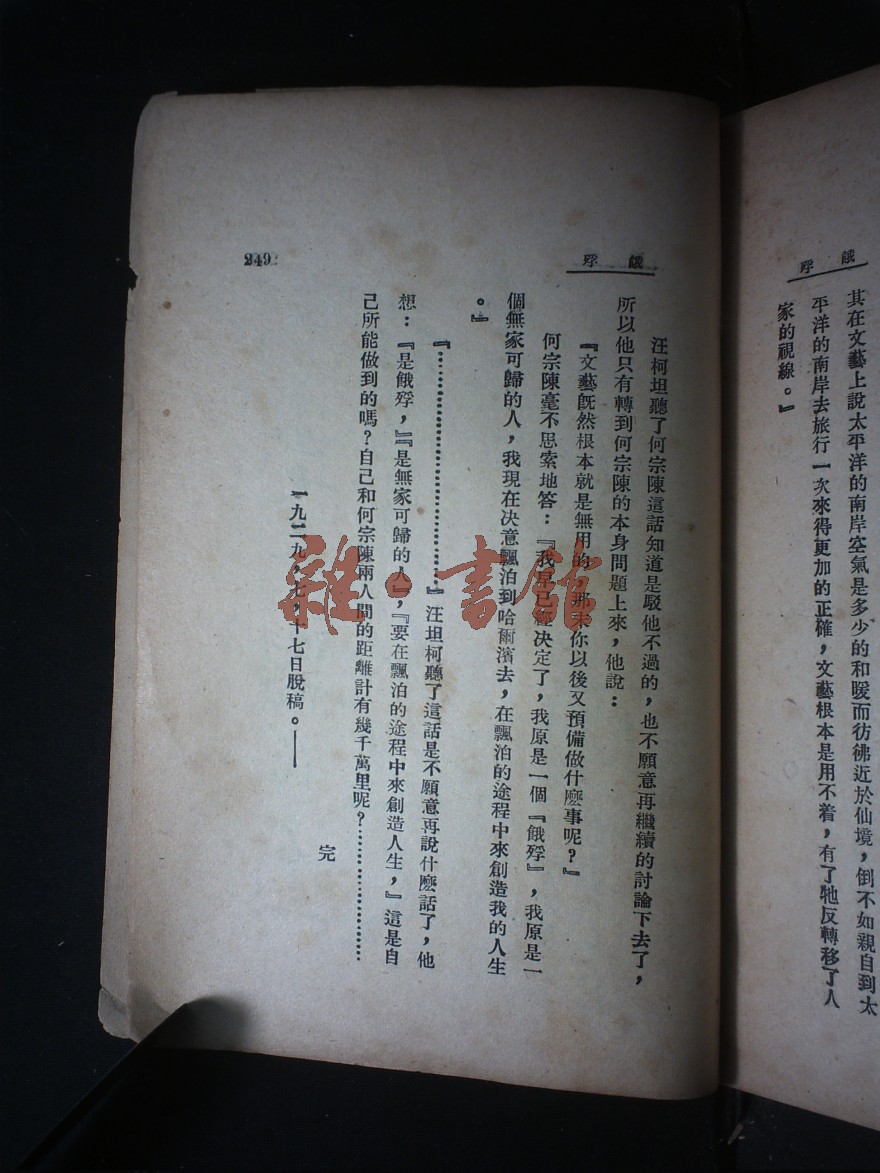 餓殍
其在文藝上說太平洋的南岸空氣是多少的和暖而彷彿近於仙境，倒不如親自到太
平洋的南岸去旅行一次來得更加的正確，文藝根本是用不着，有了牠反轉移了人
家的視線。』
餓殍
汪柯坦聽了何宗陳這話知道是駁他不過的，也不願意再繼續的討論下去了，
所以他只有轉到何宗陳的本身問題上來，他說：
『文藝旣然根本就是無用的，那末你以後又預備做什麼事呢？』
何宗陳毫不思索地答：『我早已經決定了，我原是一個『餓殍』，我原是一
個無家可歸的人，我現在決意飄泊到哈爾濱去，在飄泊的途程中來創造我的人生
。』
『…………………………』汪坦柯聽了這話是不願意再說什麼話了，他
想：『是餓殍，』『是無家可歸的人』，『要在飄泊的途程中來創造人生，』這是自
己所能做到的嗎？自己和何宗陳兩人間的距離計有幾千萬里呢？………………
一九二九，七，十七日脫稿。——
完
249
雜·書館